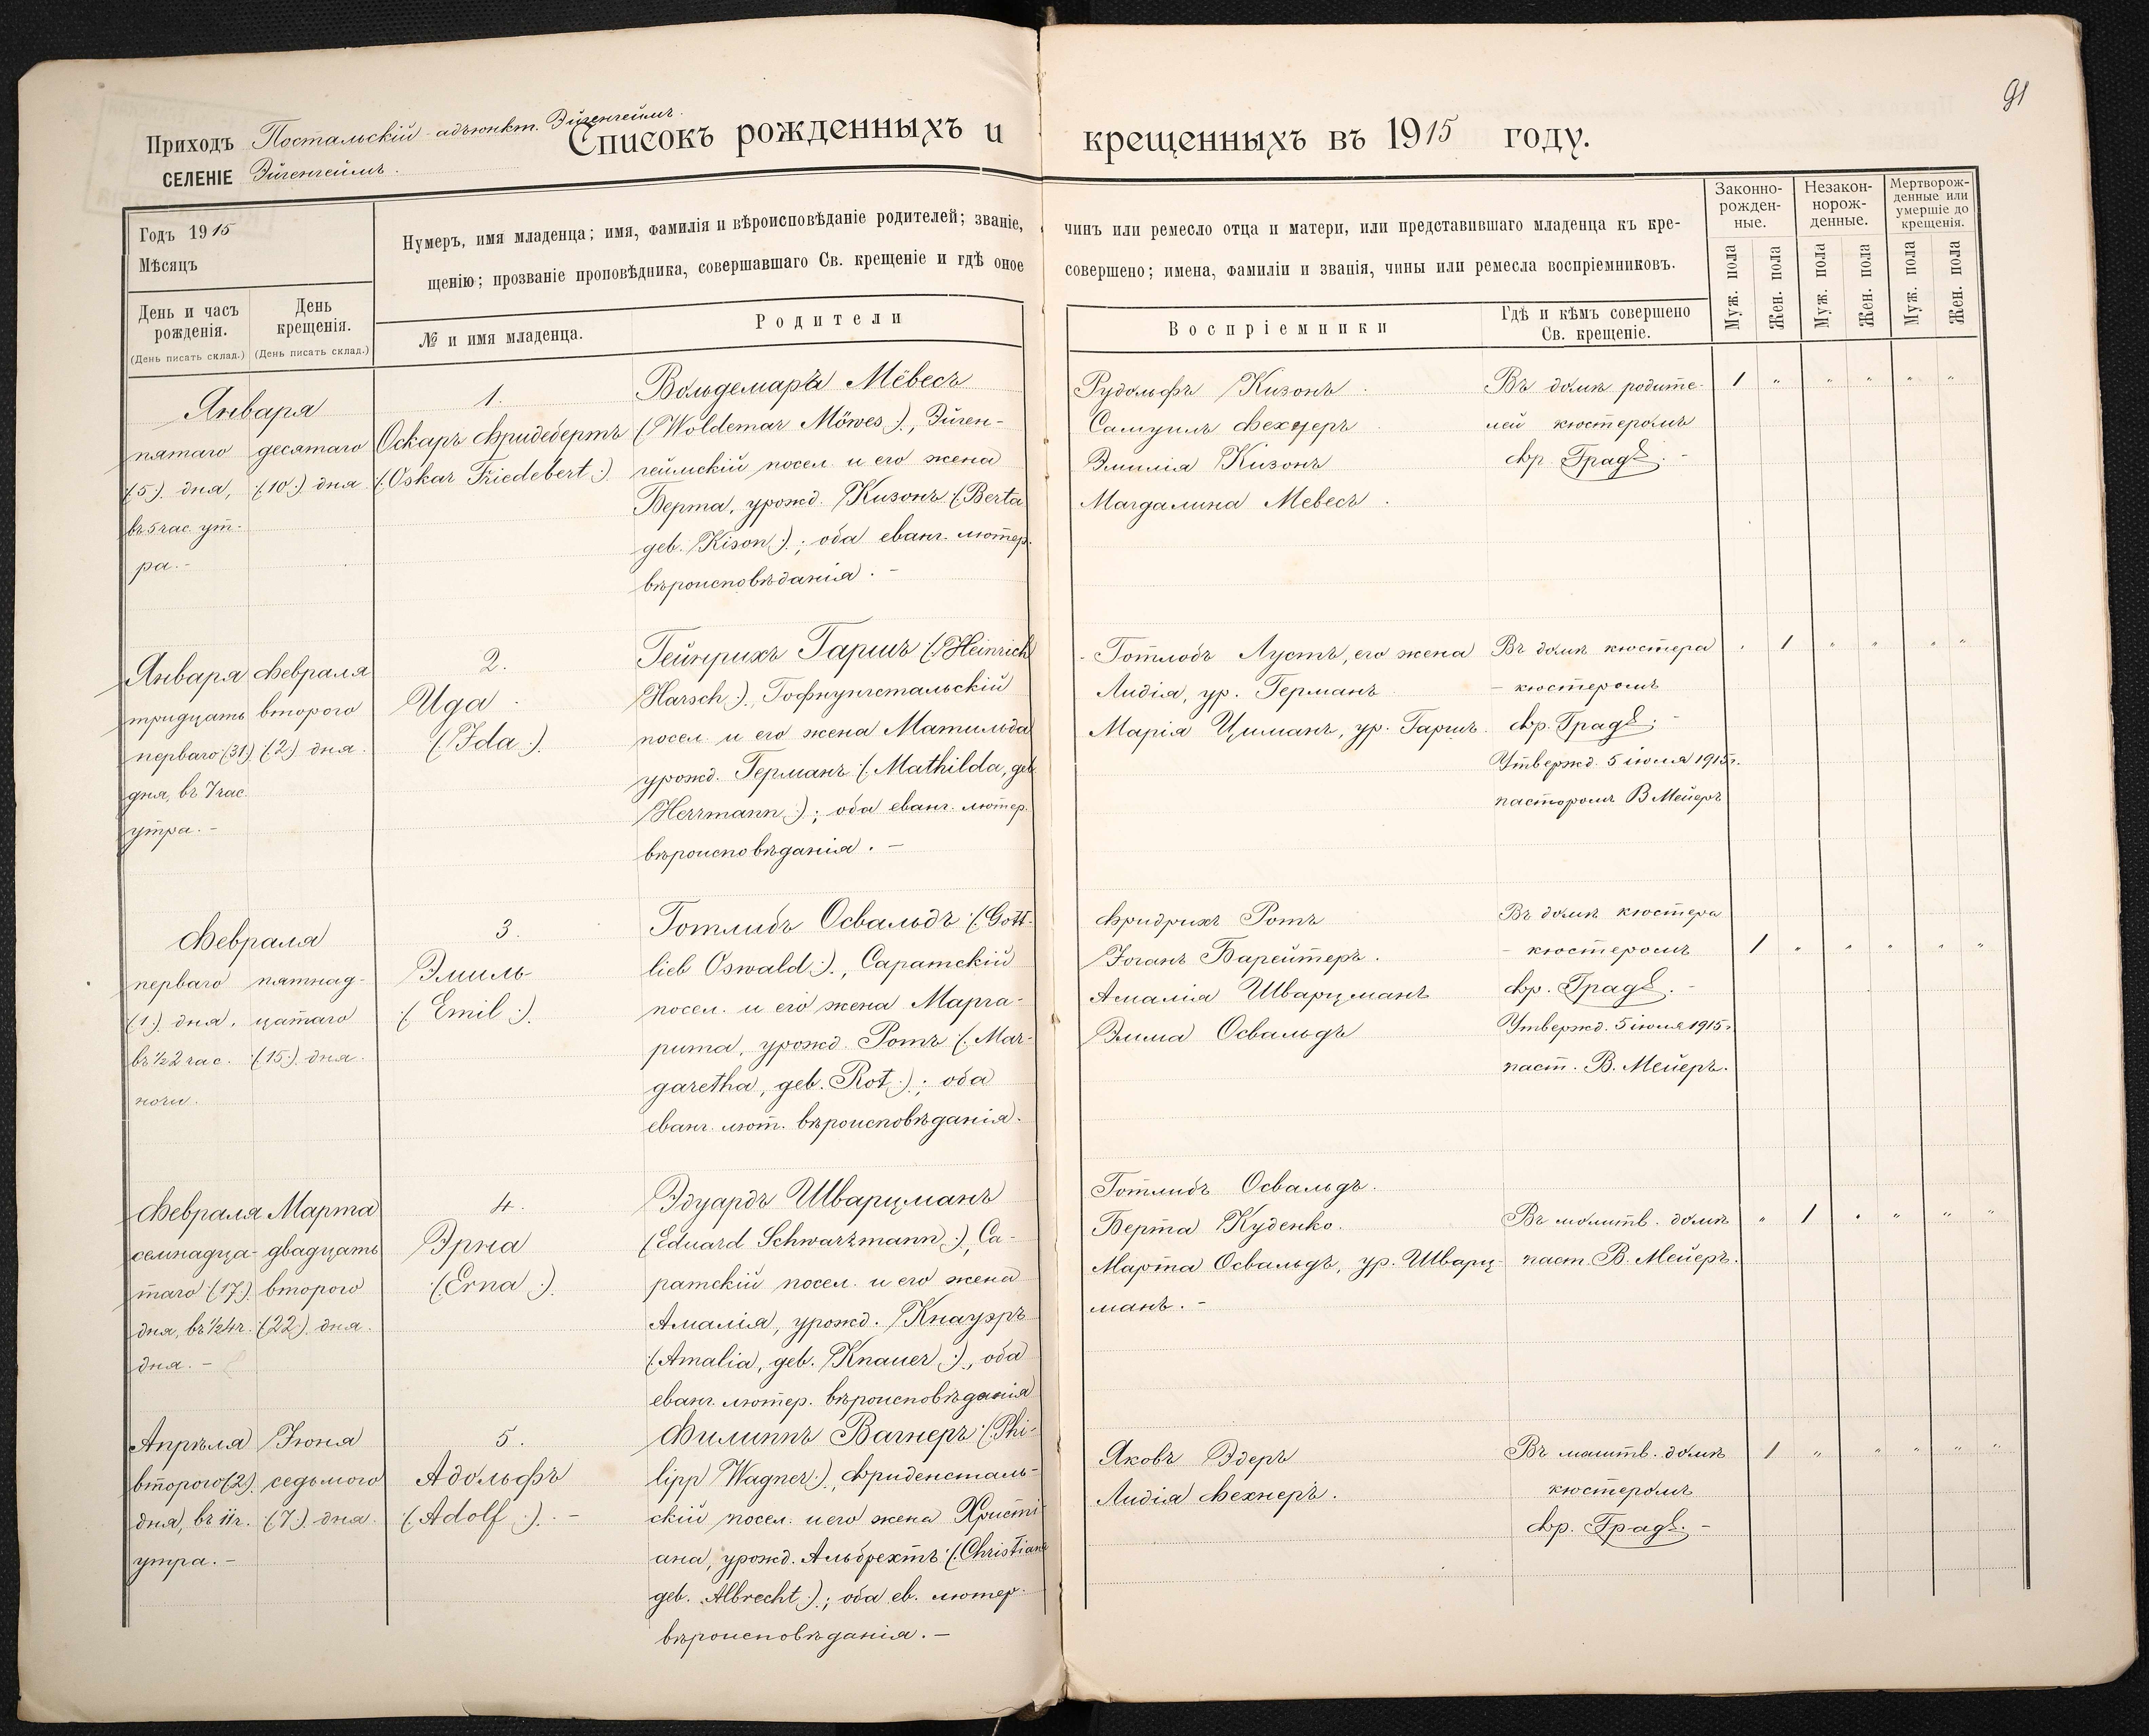 91
Приходъ Постальскій-адъюнкт. Эйгенгеймъ.
СЕЛЕНІЕ Эйгенгеймъ.
Списокъ рожденныхъ и крещенныхъ въ 1915 году.
Годъ 1915
Мѣсяцъ
День и часъ рожденія.
(День писать склад.)
День крещенія.
(День писать склад.)
Нумеръ, имя младенца; имя, фамилія и вѣроисповѣданіе родителей; званіе, чинъ или ремесло отца и матери, или представившаго младенца къ кре-
щенію; прозваніе проповѣдника, совершавшаго Св. крещеніе и гдѣ оное совершено; имена, фамиліи и званія, чины или ремесла воспріемниковъ.
№ и имя младенца.
Родители
Воспріемники
Гдѣ и кѣмъ совершено
Св. крещеніе.
Законно-
рожден-
ные.
Незакон-
норож-
денные.
Мертворож-
денные или
умершіе до
крещенія.
Муж. пола
Жен. пола
Муж. пола
Жен. пола
Муж. пола
Жен. пола
Января
пятаго
(:5:) дня,
въ 5 час. ут-
ра.-
десятаго
(:10:) дня
1.
Оскаръ Фридебертъ
(:Oskar Friedebert:)
Вольдемаръ Мёвесъ
(:Woldemar Möwes:), Эйген-
геймскій посел. и его жена
Берта, урожд. Кизонъ (:Berta
geb. Kison:); оба еванг. лютер.
вѣроисповѣданія.-
Рудольфъ Кизонъ.
Самуилъ Фехнеръ.
Эмилія Кизонъ
Магдалина Мевесъ.
Въ домѣ родите-
лей кюстеромъ
Фр. Градъ.-
1 " " " " "
Января
тридцать
перваго (:31:)
дня, въ 7 час.
утра.-
Февраля
второго
(:2:) дня.
2.
Ида.
(:Ida:)
Гейнрихъ Гаршъ (:Heinrich
Harsch:), Гофнунгстальскій
посел. и его жена Матильда
урожд. Германъ (:Mathilda, geb.
Herrmann:); оба еванг. лютер.
вѣроисповѣданія.-
Готлобъ Лустъ, его жена
Лидія, ур. Германъ
Марія Циманъ, ур. Гаршъ.
Въ домѣ кюстера
- кюстеромъ
Фр. Градъ.-
Утвержд. 5 іюля 1915г.
пасторомъ В Мейеръ
" 1 " " " "
Февраля
перваго
(:1:) дня.
въ ½2 час.
ночи.
пятнад-
цатаго
(:15:) дня.
3.
Эмиль
(:Emil:)
Готлибъ Освальдъ (:Gott-
lieb Oswald:), Саратскій
посел. и его жена Марга-
рита, урожд. Ротъ (:Mar-
garetha, geb. Rot:); оба
еванг. лют. вѣроисповѣданія.
Фридрихъ Ротъ
Іоганъ Барейтеръ.
Амалія Шварцманъ
Эмма Освальдъ
Въ домѣ кюстера
- кюстеромъ
Фр. Градъ.-
Утвержд. 5 іюля 1915г.
паст. В. Мейеръ.
1 " " " " "
Февраля
семнадца-
таго (:17:)
дня, въ ½4 ч.
дня.-
Марта
двадцать
второго
(:22:) дня.
4.
Эрна
(:Erna:)
Эдуардъ Шварцманъ
(:Eduard Schwarzmann:), Са-
ратскій посел. и его жена
Амалія, урожд. Кнауэръ
(:Amalia, geb. Knauer:), оба
еванг. лютер. вѣроисповѣданія
Готлибъ Освальдъ.
Берта Куденко.
Марта Освальдъ, ур. Шварц-
манъ.-
Въ молитв. домѣ
паст. В. Мейеръ.
" 1 " " " "
Апрѣля
второго (:2:)
дня, въ 11 ч.
утра.-
Іюня
седьмого
(:7:) дня.
5.
Адольфъ
(:Adolf:).-
Филиппъ Вагнеръ (:Phi-
lipp Wagner:), Фриденсталь-
скій посел. и его жена Христі-
ана, урожд. Альбрехтъ (:Christiana
geb. Albrecht:); оба ев. лютер.
вѣроисповѣданія.-
Яковъ Эдеръ
Лидія Фехнеръ.
Въ молитв. домѣ
кюстеромъ
Фр. Градъ.-
1 " " " " "